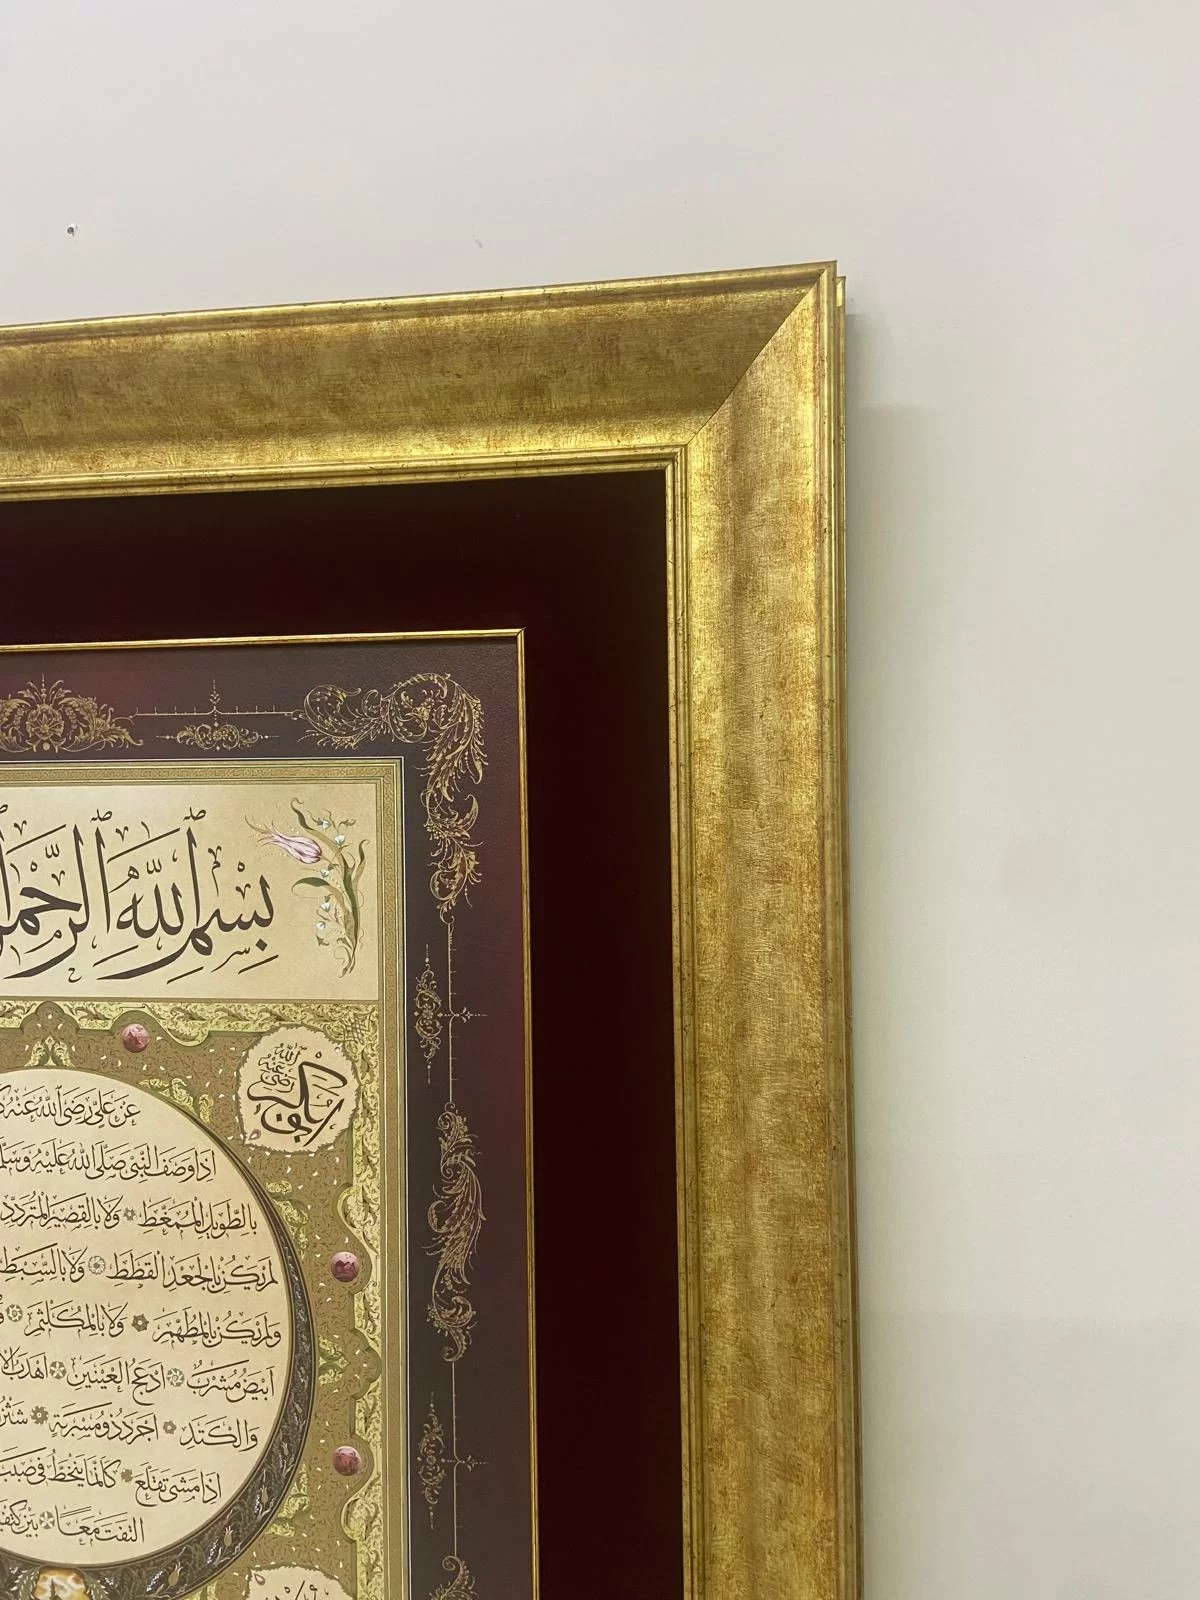 بِسْمِ اللّٰهِ الرَّحْمٰ
ابوبكر رضي الله عنه
عَنْ عَلِيٍّ رَضِيَ اللّٰهُ عَنْهُ
اِذَا وَصَفَ النَّبِيَّ صَلَّى اللّٰهُ عَلَيْهِ وَسَلَّمَ
بِالطَّوِيلِ الْمُمَّغِطِ وَلَا بِالْقَصِيرِ الْمُتَرَدِّدِ
لَمْ يَكُنْ بِالْجَعْدِ الْقَطَطِ وَلَا بِالسَّبِطِ
وَلَمْ يَكُنْ بِالْمُطَهَّمِ وَلَا بِالْمُكَلْثَمِ
اَبْيَضُ مُشْرَبٌ اَدْعَجُ الْعَيْنَيْنِ اَهْدَبُ
وَالْكَتَدِ اَجْرَدُ ذُو مَسْرُبَةٍ
اِذَا مَشَى تَقَلَّعَ كَاَنَّمَا يَنْحَطُّ فِي صَبَبٍ
الْتَفَتَ مَعًا بَيْنَ كَتِفَ